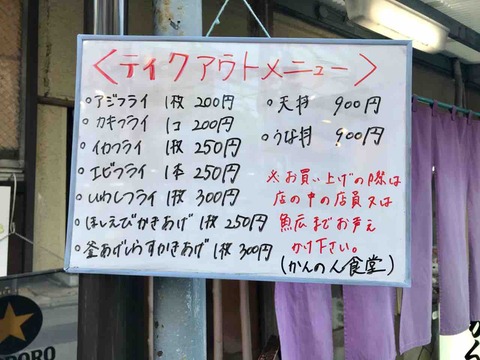 ＜テイクアウトメニュー＞
○アジフライ 1枚 200円
○カキフライ 1コ 200円
○イカフライ 1枚 250円
○エビフライ 1本 250円
○いわしフライ 1枚 300円
○ほしえびかきあげ 1枚 250円
○釜あげしらすかきあげ 1枚 300円
○天丼 900円
○うな丼 900円
※お買い上げの際は
店の中の店員又は
魚広までお声え
かけ下さい。
(かんのん食堂)
PPORO
かん